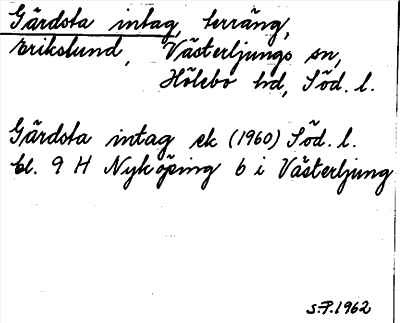 Gärdsta intag, terräng,
Erikslund, Västerljungs sn,
Hölebo hd, Söd. l.
Gärdsta intag ek (1960) Söd. l.
bl. 9 H Nyköping 6 i Västerljung
S.P. 1962